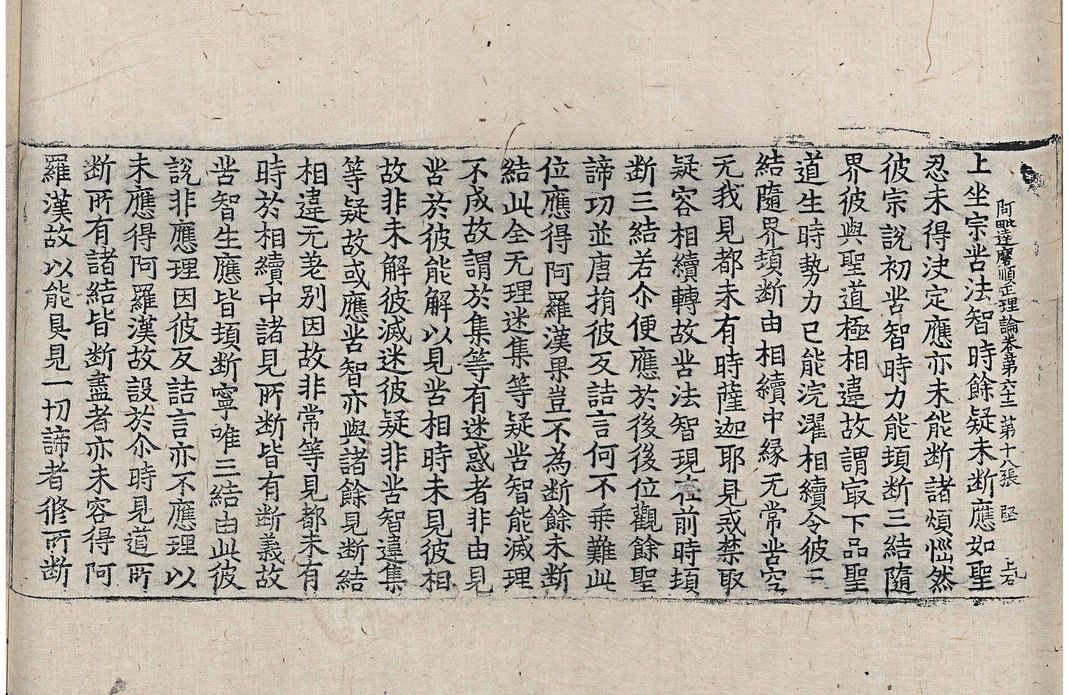 阿毗達磨順正理論卷第六十二 第十八張 堅
上石
上坐宗苦法智時餘疑未断應如聖
忍未得决定應亦未能断諸煩惱然
彼宗說初苦智時力能頓断三結隨
界彼與聖道極相違故謂㝡下品聖
道生時勢力已能浣濯相續令彼三
結隨界頓断由相續中緣无常苦空
无我見都未有時薩迦耶見戒禁取
疑容相續轉故苦法智現在前時頓
断三結若尒便應於後後位觀餘聖
諦功並唐捐彼反詰言何不乘難此
位應得阿羅漢果豈不為断餘未断
結此全无理迷集等疑苦智能滅理
不成故謂於集等有迷惑者非由見
苦於彼能解以見苦相時未見彼相
故非未解彼滅迷彼疑非苦智違集
等疑故或應苦智亦與諸餘見断結
相違元差别因故非常等見都未有
時於相續中諸見所断皆有断義故
苦智生應皆頓断寧唯三結由此彼
說非應理因彼反詰言亦不應理以
未應得阿羅漢故設於尒時見道所
断所有諸結皆断盡者亦未容得阿
羅漢故以能具見一切諦者脩所断